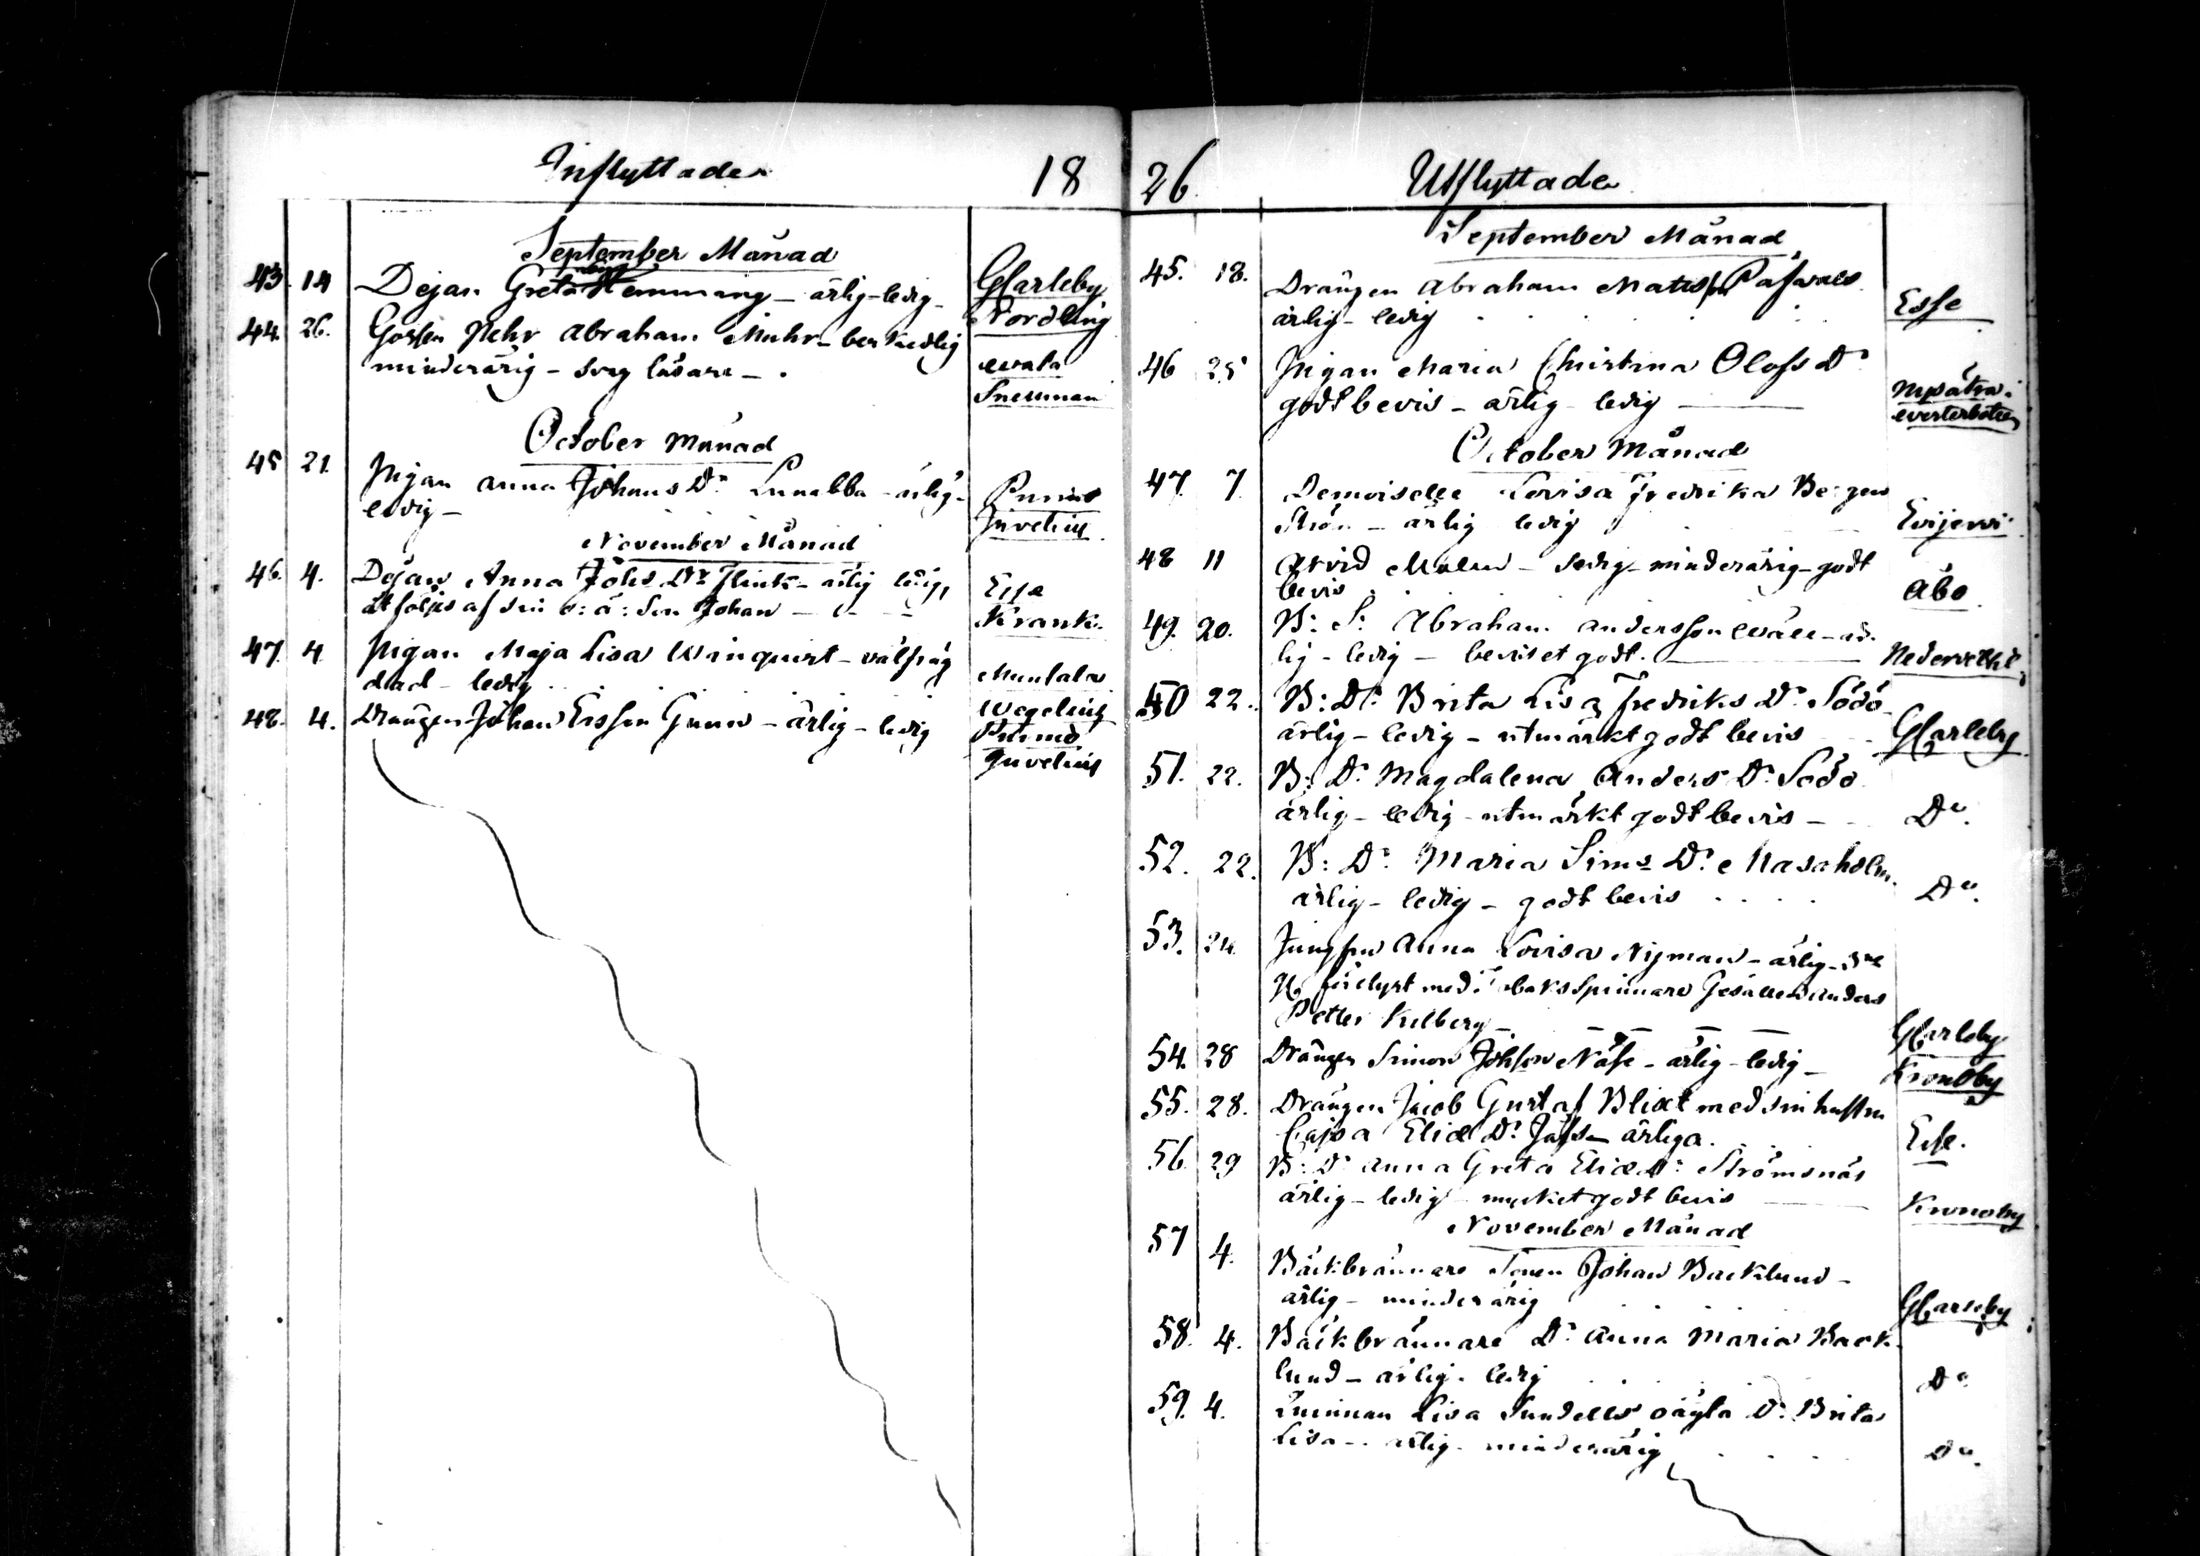 Inflyttade 18
September Månad
43. 14 Dejan Greta Hemming - ärlig - ledig - GCarleby
Nordling
44. 26. Gossen Pehr Abraham Muhr - beskedlig
minderårig - svag läsare - . Wasa
Snellman
October Månad
45 21. Pigan Anna Johans Dr - ärlig - Purmo
ledig - Juvelius
November Månad
46. 4. Dejan Anna Johs Dr Flink - ärlig ledig, Esse
åtföljes af sin o: ä: Son Johan - Krank.
47. 4 Pigan Maja Lisa Winquist - välfräg
dad - ledig Munsala
Wegelius
48. 4. Drängen Johan Ersson Gunn - ärlig - ledig Purmo
Juvelius
26. Utflyttade
September Månad
45. 18. Drängen Abraham Matsson
ärlig - ledig Esse
46 25 Pigan Maria Christina Olofs Dr
godt bevis - ärlig - ledig
October Månad
47. 7. Demoiselle Lovisa Fredrika Bergen
Ström - ärlig ledig Evijervi
48 11 Arvid Malm - ledig - minderårig - godt
bevis Åbo
49. 20. B: S: Abraham Andersson - är
lig - ledig - beviset godt. Nedervetil
50 22. B: Dr Brita Lisa Fredriks Dr Södö
ärlig - ledig - utmärkt godt bevis GCarleby
51. 22. B: Dr Magdalena Anders Dr Södö
ärlig - ledig - utmärkt godt bevis - Do.
52. 22. B: Dr Maria Sims Dr Nasaholm
ärlig - ledig - godt bevis Do.
53. 24. Jungfru Anna Lovisa Nyman - ärlig -
förelyst med Tobaksspinnare Gesällen Anders
Petter Kulberg - GCarleby
54. 28 Drängen Simon Johsson Nåse - ärlig - ledig - Kronoby
55. 28. Drängen Jacob Gustaf Blixt med sin hustru
Cajsa Eliæ Dr ärliga. Esse.
56. 29 B: Dr Anna Greta Eliæ Dr Strömsnäs
ärlig - ledig - mycket godt bevis Kronoby
November Månad
57 4. Bäckbrännare Sonen Johan Backlund -
ärlig - minderårig GCarleby
58. 4. Bäckbrännare Dr Anna Maria Back
lund - ärlig - ledig Do
59. 4. Qvinnan Lisa Sundells oägta Dr Brita
Lisa - ärlig - minderårig Do.